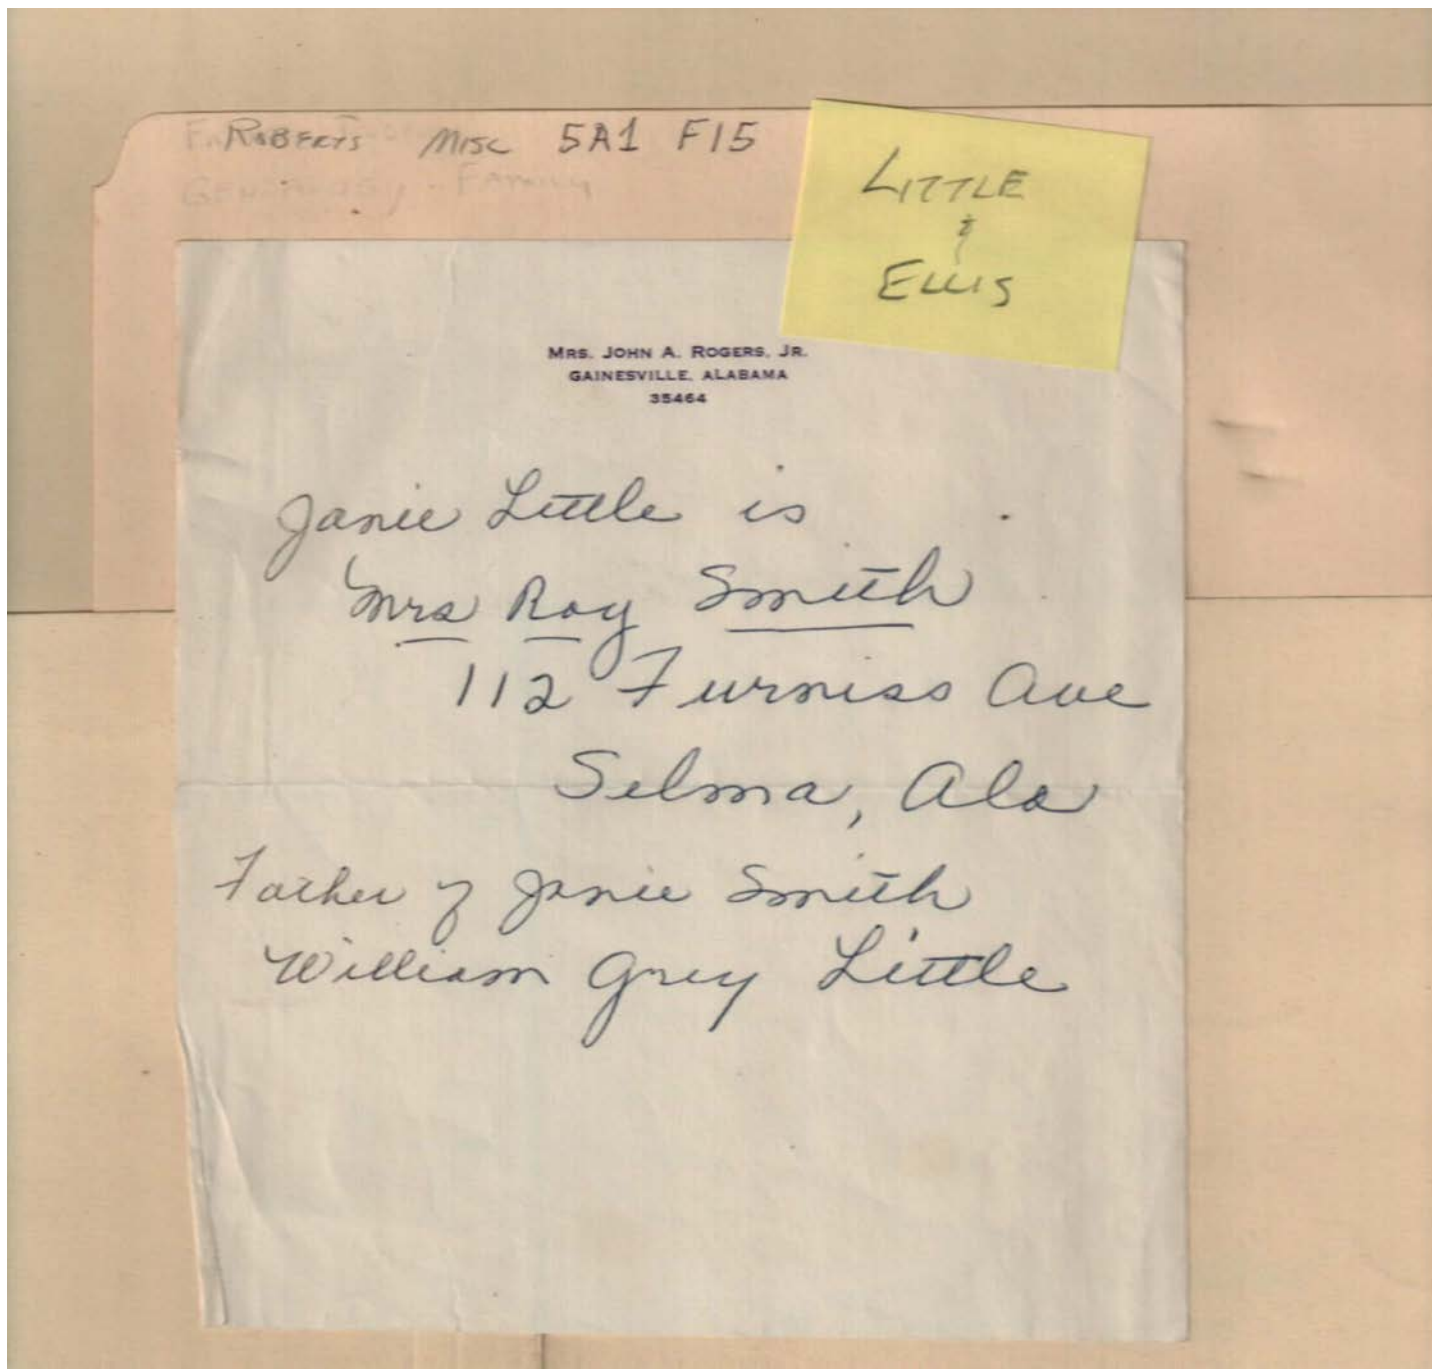 Roberts Misc 5A1 F15
Genealogy - Family
LITTLE
&
ELLIS
MRS. JOHN A. ROGERS, JR.
GAINESVILLE, ALABAMA
35464
Janie Little is
Mrs Roy Smith
112 Furniss Ave
Selma, Ala
Father of Janie Smith
William Grey Little